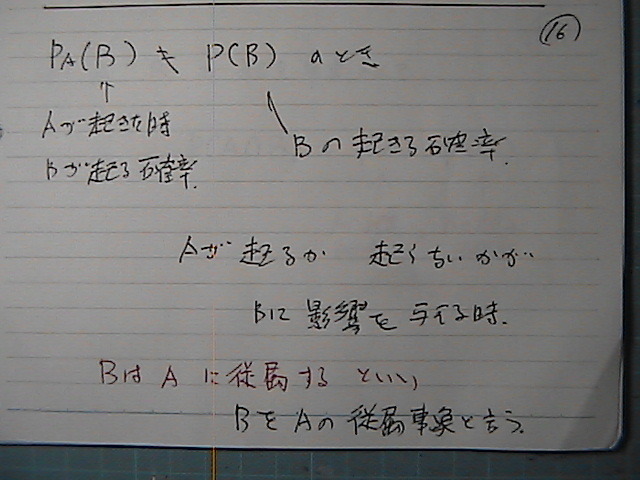 ⑯
P_A(B) ≠ P(B) のとき
↑
Aが起きた時
Bが起る確率.
Bの起きる確率.
Aが起るか 起らないかが
Bに影響を与える時.
BはAに従属するといい
BをAの従属事象と言う.